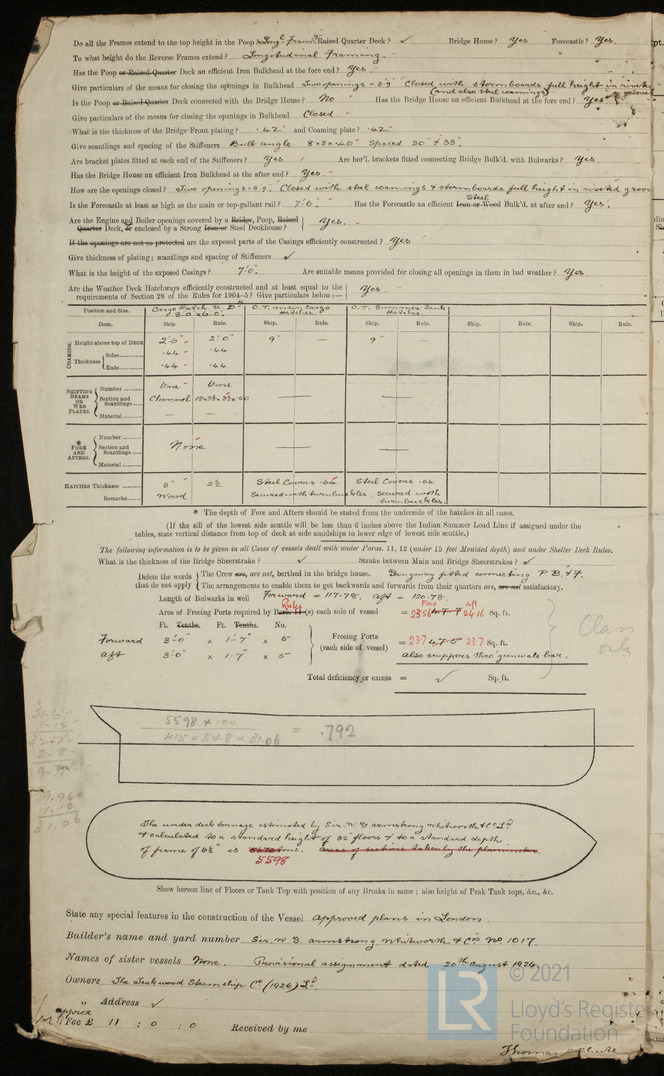 Do all the Frames extend to the top height in the Poop? Longl framg Raised Quarter Deck? ✓ Bridge House? Yes Forecastle? Yes.
To what height do the Reverse Frames extend? Longitudinal Framing.
Has the Poop or Raised Quarter Deck an efficient Iron Bulkhead at the fore end? Yes
Give particulars of the means for closing the openings in Bulkhead Two openings = 3'9" Closed with stormboards full height in riveted
(and also steel coamings)
Is the Poop or Raised Quarter Deck connected with the Bridge House? No Has the Bridge House an efficient Bulkhead at the fore end? Yes
Give particulars of the means for closing the openings in Bulkhead Closed.
What is the thickness of the Bridge Front plating? .42" and Coaming plate? .42"
Give scantlings and spacing of the Stiffeners Bulb angle 8 × 3 × .40" Spaced 30" & 33".
Are bracket plates fitted at each end of the Stiffeners? Yes Are hor'l. brackets fitted connecting Bridge Bulk'd. with Bulwarks? Yes.
Has the Bridge House an efficient Iron Bulkhead at the after end? Yes.
How are the openings closed? Two openings = 3'9". Closed with steel coamings & stormboards full height in riveted groov
Is the Forecastle at least as high as the main or top-gallant rail? 7'6" Has the Forecastle an efficient Iron or Wood Steel Bulk'd. at after end? Yes.
Are the Engine and Boiler openings covered by a Bridge, Poop, Raised
Quarter Deck, or enclosed by a Strong Iron or Steel Deckhouse? Yes.
If the openings are not so protected are the exposed parts of the Casings efficiently constructed? Yes
Give thickness of plating; scantlings and spacing of Stiffeners ✓
What is the height of the exposed Casings? 7'0". Are suitable means provided for closing all openings in them in bad weather? Yes.
Are the Weather Deck Hatchways efficiently constructed and at least equal to the
requirements of Section 28 of the Rules for 1904-5? Give particulars below:— Yes.
Position and Size. Cargo Hatch U. Dk 8'0" × 6'0". O.T. main Cargo Hatches O.T. Summer Tank Hatches
Item. Ship. Rule. Ship. Rule. Ship. Rule. Ship. Rule. Ship. Rule.
COAMING. Height above top of DECK 2'6" 2'0" 9" — 9" —
Thickness Sides .44 .44
Ends .44 .44
SHIFTING BEAMS OR WEB PLATES. Number One One
Section and Scantlings Channel
Material — —
* FORE AND AFTERS. Number
Section and Scantlings None
Material
HATCHES Thickness 3" 2½ Steel Covers .44 Steel Covers .44
Remarks Wood Secured with turnbuckles, secured with turnbuckles.
* The depth of Fore and Afters should be stated from the underside of the hatches in all cases.
(If the sill of the lowest side scuttle will be less than 6 inches above the Indian Summer Load Line if assigned under the
tables, state vertical distance from top of deck at side amidships to lower edge of lowest side scuttle.)
The following information is to be given in all Cases of vessels dealt with under Paras. 11, 12 (under 15 feet Moulded depth) and under Shelter Deck Rules.
What is the thickness of the Bridge Sheerstrake? ✓ Strake between Main and Bridge Sheerstrakes? ✓
Delete the words that do not apply The Crew are, are not, berthed in the bridge house. Gangway fitted connecting P. B. & F.
The arrangements to enable them to get backwards and forwards from their quarters are, are not satisfactory.
Length of Bulwarks in well Forward = 117.78. aft = 120.78.
Area of Freeing Ports required by Para. 11 (e) Rules each side of vessel = Ford 23.56 47.7 aft 24.16 Sq. ft.
Ft. Tenths. Ft. Tenths. No.
Forward 3'0" × 1'.7" × 5
aft 3'0" × 1.7" × 5
Freeing Ports (each side of vessel) = 23.7 47.5 23.7 Sq. ft.
also scuppers thro' gunwale bar.
Class only
Total deficiency or excess = ✓ Sq. ft.
5598 × 100
415 × 54.8 × 31.06 = .792
The under deck tonnage estimated by Sir. W. G. Armstrong Whitworth & Co Ld
& calculated to a standard height of 32" floors & to a standard depth
of frame of 6½" is tons. Areas of sections taken by the planimeter.
5598
Show hereon line of Floors or Tank Top with position of any Breaks in same; also height of Peak Tank tops, &c., &c.
State any special features in the construction of the Vessel approved plans in London.
Builder's name and yard number Sir. W. G. Armstrong Whitworth & Co's No 1017.
Names of sister vessels None. Provisional assignment dated 20th August 1926.
Owners The Teakwood Steamship Co (1926) Ld.
„ Address ✓
approx
Fee £ 11 : 0 : 0 Received by me
© 2021
LR Lloyd's Register
Foundation